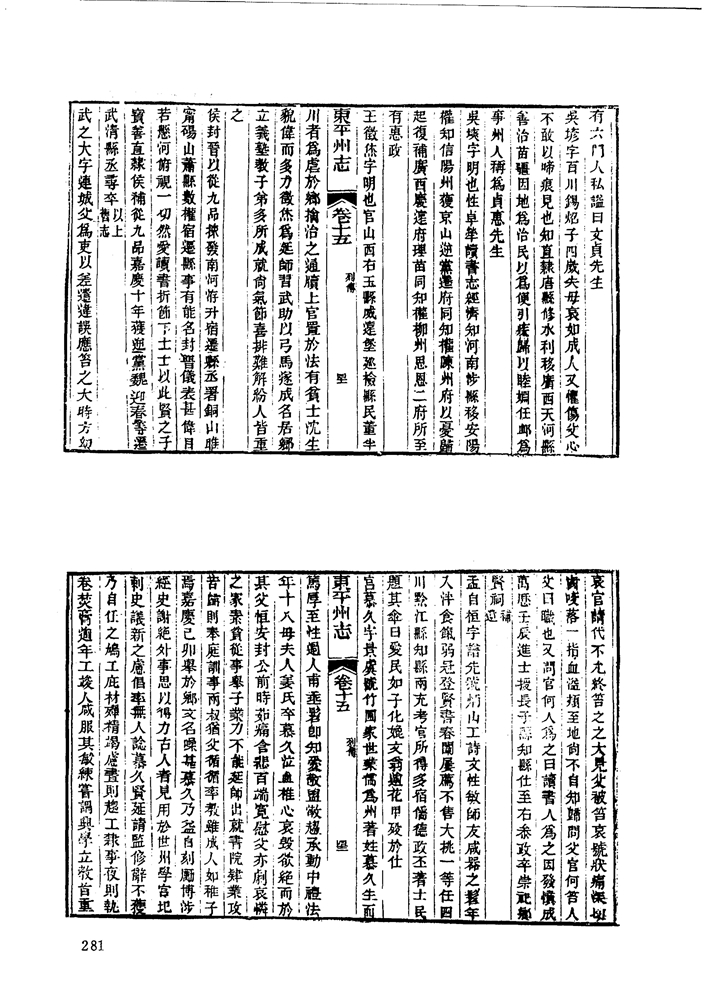 有六門人私諡曰文貞先生
吳埉字百川錫焰子四歲失母哀如成人又懼傷父心
不敢以啼痕見也知直隸唐縣修水利移廣西天河縣
善治苗疆因地爲治民以爲便引疾歸以睦婣任卹爲
事州人稱爲貞惠先生
吳埮字明也性卓犖讀書志經濟知河南涉縣移安陽
權知信陽州獲京山逆黨遷府同知權陳州府以憂歸
起復補廣西慶遠府理苗同知權柳州思恩二府所至
有惠政
王徵烋字明也官山西右玉縣威遠堡巡檢縣民董半
東平州志 卷十五 列傳
川者爲虐於鄉擒治之通牘上官置於法有貧士沈生
貌偉而多力徵烋爲延師習武助以弓馬遂成名居鄉
立義塾教子弟多所成就尙氣節喜排難解紛人皆重
之
侯封晉以從九品揀發南河洊升宿遷縣丞署銅山睢
甯碭山蕭縣數權宿遷縣事有能名封晉儀表甚偉目
若懸河俯視一切然愛讀書折節下士士以此賢之子
寶善直隸侯補從九品嘉慶十年獲逆黨魏迎春等遷
武清縣丞尋卒 以上舊志
武之大字連城父爲吏以差遣違誤應笞之大時方幼
哀官請代不允終笞之之大見父被笞哀號狀痛深切
齒咬落一指血溢頰至地尙不自知歸問父官何笞人
父曰職也又問官何人爲之曰讀書人爲之因發憤成
萬厯壬辰進士授長子縣知縣仕至右叅政卒崇祀鄉
賢祠 補遺
孟自恒字諧先號炳山工詩文性敏師友咸器之髫年
入泮食餼弱冠登賢書春闈屢薦不售大挑一等任四
川黔江縣知縣兩充考官所得多宿儒德政丕著士民
題其傘曰愛民如子化媲文翁遄花甲歿於仕
宮慕久字景虞號竹圃家世業儒爲州著姓慕久生而
東平州志 卷十五 列傳
篤厚至性過人甫垂髫卽知愛敬盥敬趨承動中禮法
年十八母夫人姜氏卒慕久泣血椎心哀毀欲絕而於
其父恒安封公前時茹痛含悲百端寬慰父亦劇哀憐
之家素貧從事舉子業力不能延師出就書院肄業攻
苦歸則奉庭訓事兩叔猶父循循率教雖成人如稚子
焉嘉慶己卯舉於鄉文名噪甚慕久乃益自刻厲博涉
經史謝絕外事思以得力古人者見用於世州學宮圯
刺史議新之慮倡率無人諗慕久賢延請監修辭不獲
乃自任之鳩工庀材殫精竭慮晝則趨工隷事夜則執
卷焚膏逾年工竣人咸服其敏練嘗謂興學立教首重
281